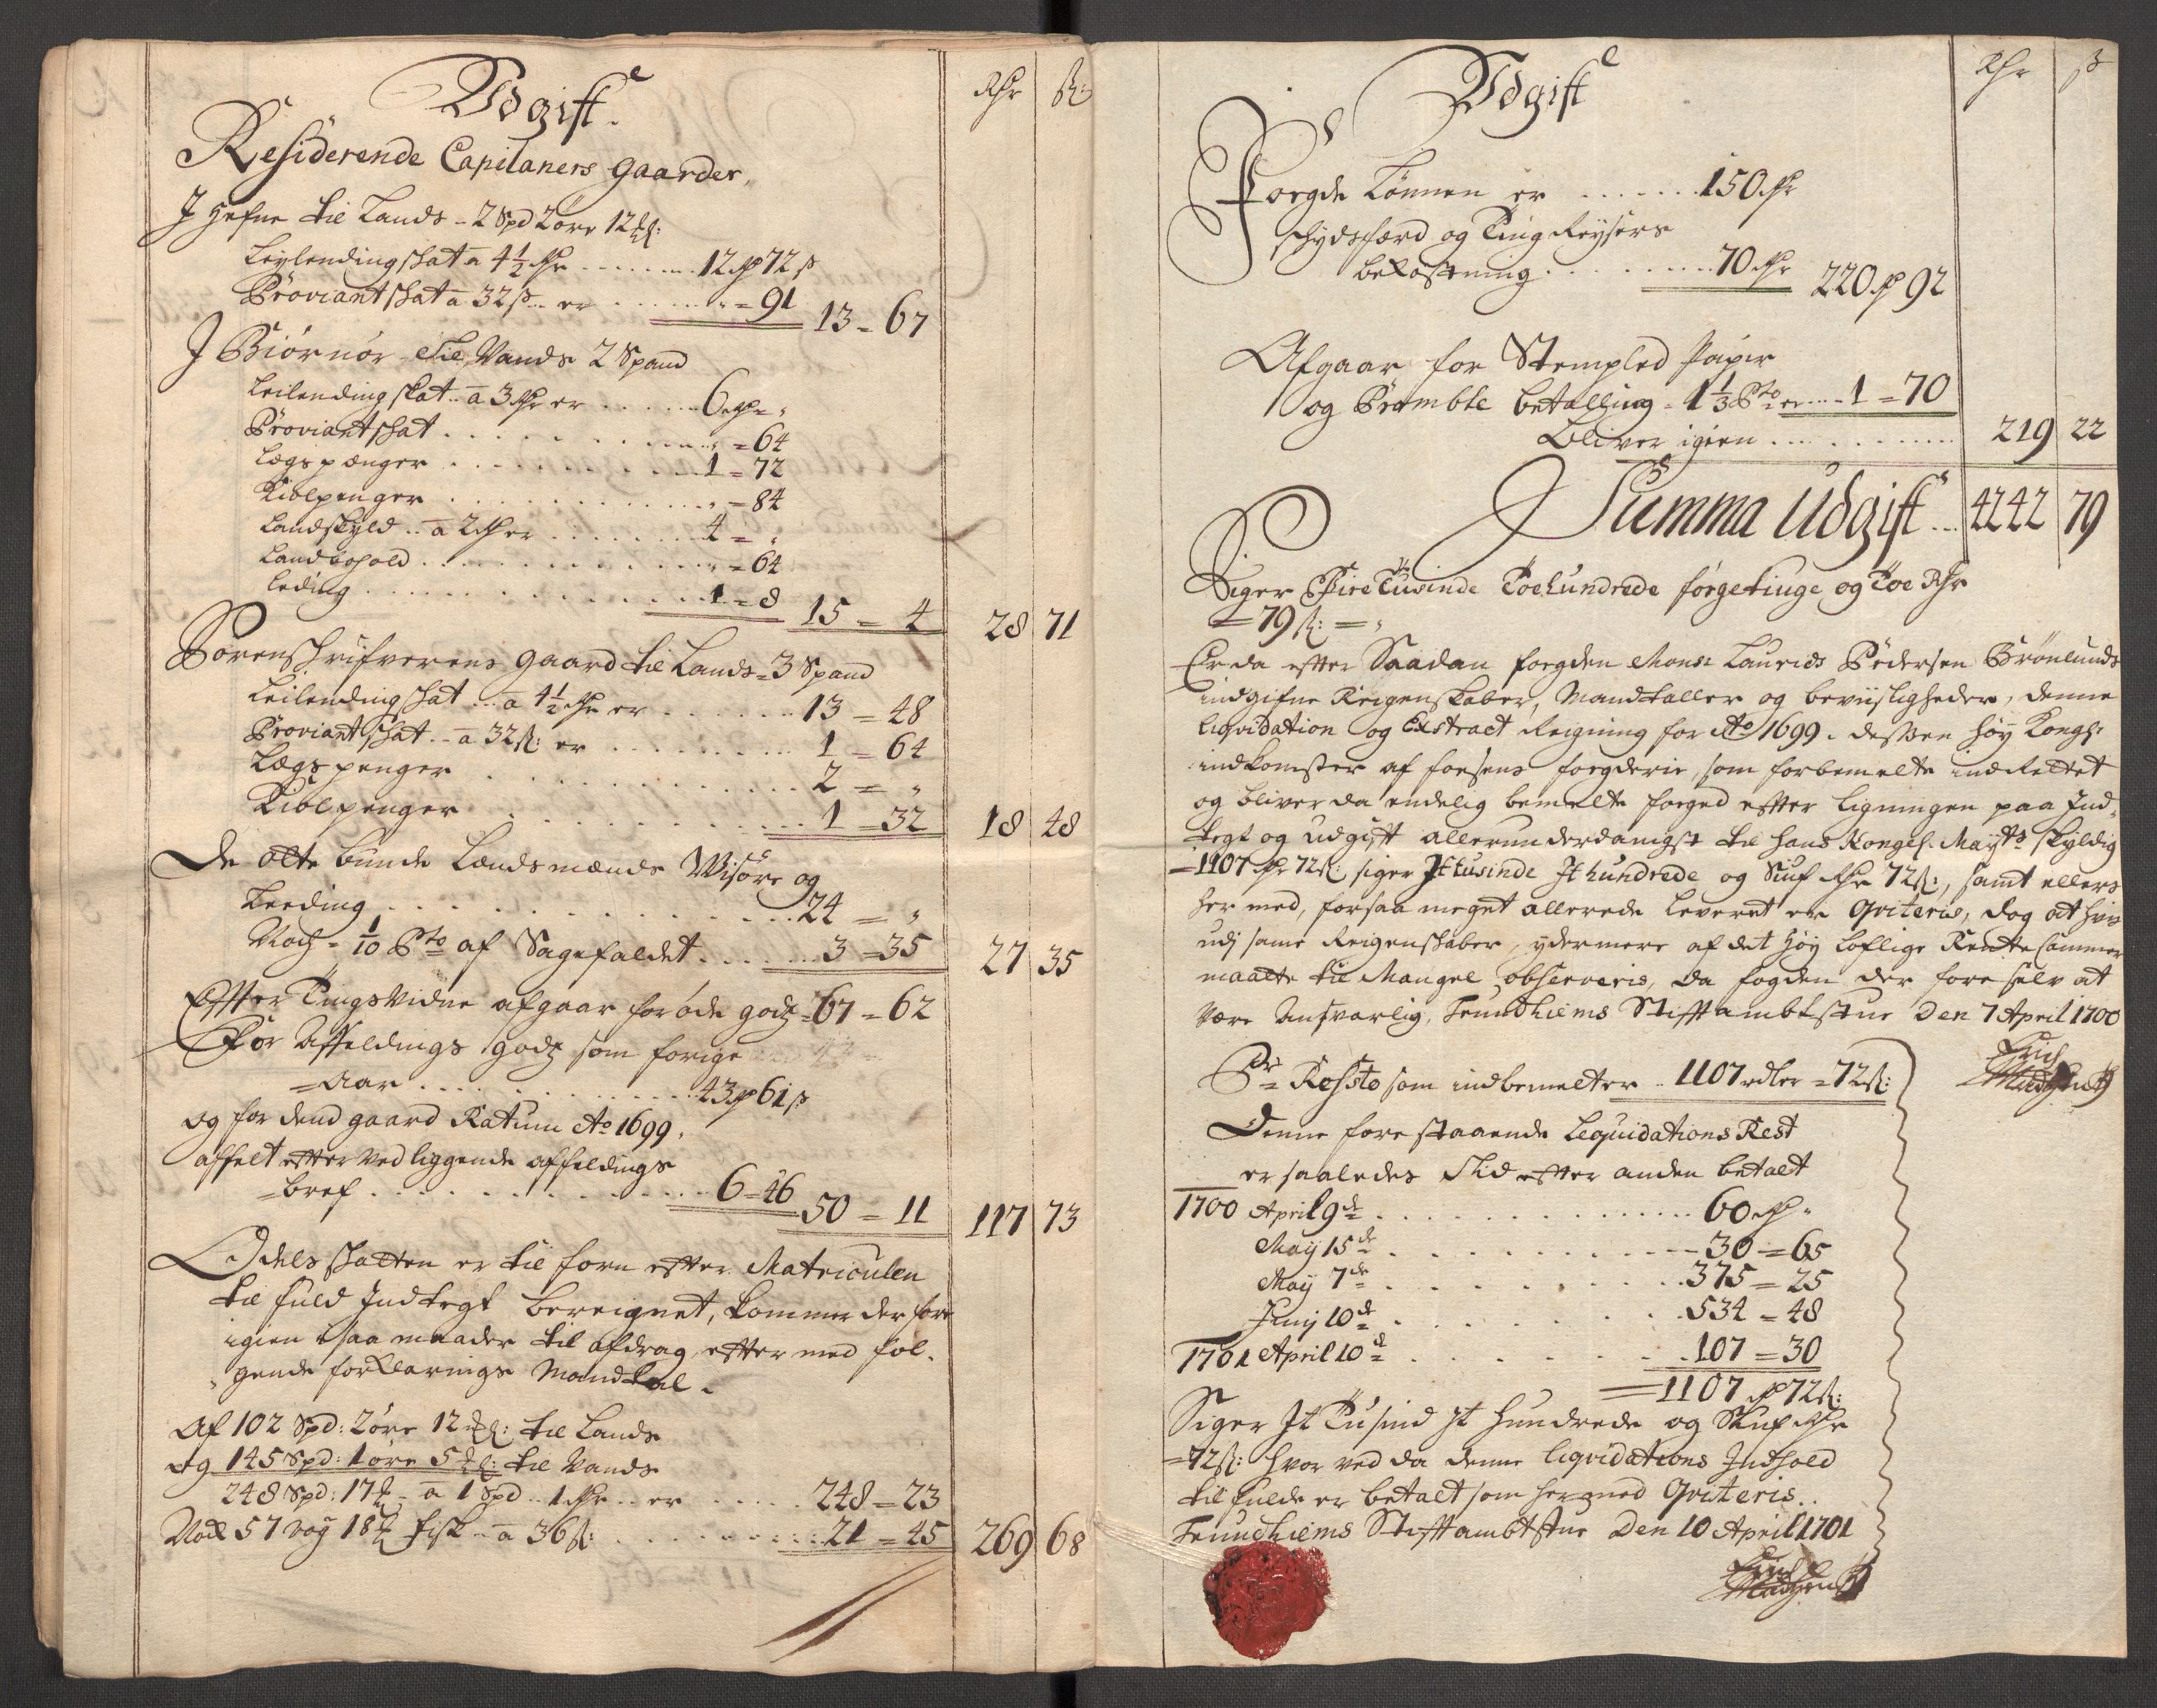 Udgift.
Rdr ß:
Residerende Capilaners gaarder,
J Hefne til Lands - 2 Spd 2 öre 12 ℔:
Leylending skat a 4½ Rdr ....... 12 Rdr 72 ß
Proviant skat a 32 ß.. er ....... = 91 13 = 67
J Biörnör til Vands 2 Spand
Leilending skat .. a 3 Rdr er ..... 6 Rdr = "
Proviant skat ........... = 64
Lægspænger ........... 1 = 72
Kiolpenger ........... " = 84
Landskyld .. a 2 Rdr er ....... 4 = "
Landbohold ........... " = 64
leding ........... 1 = 8 15 = 4 28 71
Sorenskrifverens gaard til Lands = 3 Spand
Leilending skat .. a 4½ Rdr er ...... 13 = 48
Proviant skat .. a 32 ß: er ....... 1 = 64
Lægspenger ........... 2 = "
Kiolpenger ........... 1 = 32 18 48
De otte bunde Lændsmænds Wisöre og
Leeding ........... 24 = "
Noch - 1/10 Pto af Sagefaldet ...... 3 = 35 27 35
Effter Tings Vidne afgaar for øde godtz = 67 = 62
For Affeldings godtz som forige
= Aar ........... 43 Rdr 61 ß
og for dend gaard Ratum Ao 1699,
affelt effter ved liggende affeldings
= bref ........... 6 = 46 50 = 11 117 73
Odels skatten er til forn effter Matriculen
til fuld Indtegt bereignet, kommer der fore
igien i saa maader til afdrag, effter med föl-
gende forklarings Mandtal -
Af 102 Spd: 2 öre 12 ℔: til Lands
og 145 Spd: 1 öre 5 ℔: til Vands
248 Spd: 17 ℔ - a 1 Spd .. 1 Rdr .. er .... 248 = 23
Noch 57 Vog 18 ℔ fisk - a 36 ß: ........ 21 = 45 269 68
Udgift
Rdr ß
Foegde Lönnen er ....... 150 Rdr
Skydsfærd og Ting Reysers
bekostning ........ 70 Rdr 220 Rdr 92
Afgaar for Stempled Papir
og Prombte betalling - 1⅓ Pto er .... 1 = 70
bliver igien ........... 219 22
Summa Udgift ... 4242 79
Siger Fire Tusinde Toehundrede förgetiuge og Toe Rdr
= 79 ß: = "
Er da effter Saadan foegden Monsr Laurids Pedersen Brönlunds
indgifne Reigenskaber, Mandtaller og beviisligheder, denne
liqvidation og Extract Reigning for Ao 1699 - dessen höy Kongl:
indkomster af foesens foegderie, som forbemelte indrettet
og bliver da endelig bemelte foeged effter ligningen paa Ind-
tegt og udgift allerunderdanigst til hans Kongel. Maytt skyldig
= 1107 Rdr 72 ß: siger Jt tusinde Jt hundrede og Siuf Rdr 72 ß:, samt ellers
her med, for saa meget allerede leveret er Qviteris, dog at hvis
udj same Reigenskaber, ydermere af det höy loflige Rentte Cammer
maatte til Mangel observeris, da fogden der fore selv at
være Ansvarlig, Trundhiems Stifftambtstue Den 7 April 1700
Erich
Pr Ressto som indbemelter .. 1107 rdler = 72 ß:
Denne forestaaende Leqvidations Rest
er saaledes Tid effter anden betalt
1700 April 9de ........... 60 Rdr "
May 15de ........... 30 = 65
May 7de ........... 375 = 25
Junj 10de ........... 534 = 48
1701 April 10de ........... 107 = 30
= 1107 Rdr 72 ß:
Siger Jt Tusind Jt hundrede og Siuf Rdr
= 72 ß: hvor ved da denne liqvidations Indhold
til fulde er betalt som her med Qviteris..
Trundhiems Stifftambtstue Den 10 April 1701
Erich